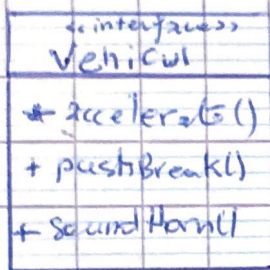 <<interface>>
Vehicul
+ accelerate()
+ pushBreak()
+ soundHorn()